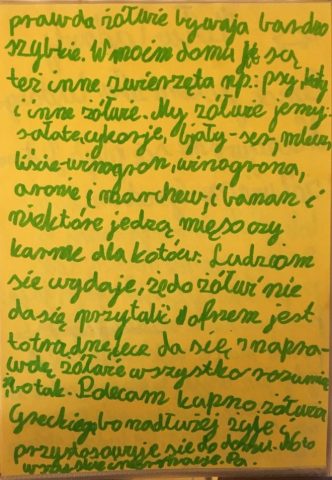 prawda żółwie bywają bardzo
szybkie. W moim domu są
też inne zwierzęta np: psy, koty
i inne żółwie. My żółwie jemy:
sałatę, cykorję, biały-ser, mlecz,
liście-winogron, winogrona,
aronie i marchew, i banan i
niektóre jedzą mięso czy
karmę dla kotów. Ludziom
sie wydaje, że do żółwi nie
da się przytulić jest
to trudne lecz da się z napra-
wdę żółwie wszystko rozumie
bo tak. Polecam kupno żółwia
Greckiego bo najdłużej żyje i
przystosowuje się do domu. No to
wszystkie